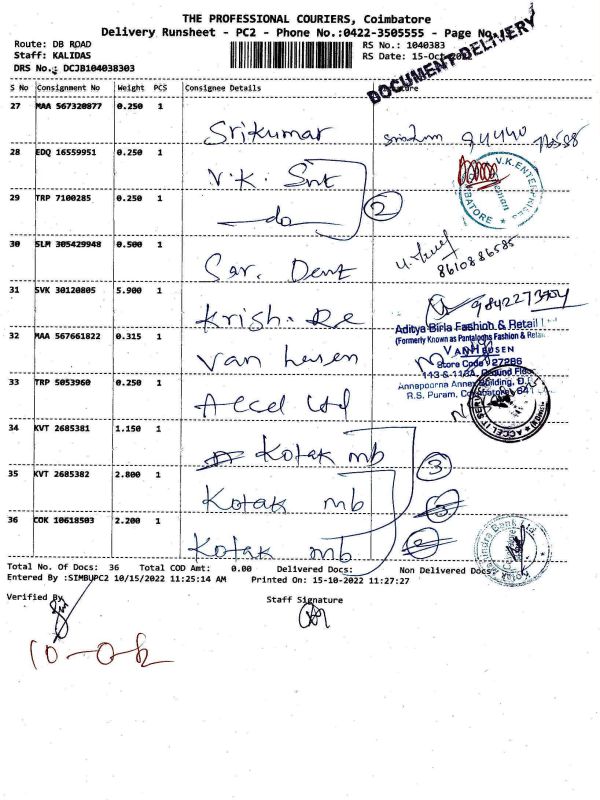 THE PROFESSIONAL COURIERS, Coimbatore
Delivery Runsheet - PC2 - Phone No.:0422-3505555 - Page No.
Route: DB ROAD
RS No.: 1040383
Staff: KALIDAS
RS Date: 15-Oct-2022
DRS No.: DCJB104038303
DOCUMENT DELIVERY
S No Consignment No Weight PCS Consignee Details
27 MAA 567320877 0.250 1 Srikumar 94440
28 EDQ 16559951 0.250 1 V.K. Snt
V.K.ENTERPRISES
29 TRP 7100285 0.250 1 do 2
30 SLM 305429948 0.500 1 Sar. Dent 8610886585
31 SVK 30120805 5.900 1 Krish. Re
Aditya Birla Fashion & Retail
(Formerly Known as Pantaloons Fashion & Retail
32 MAA 567661822 0.315 1 Van heusen
VAN HEUSEN
Store Code 27286
113 & 113A, Ground Floor
Annapoorna Annex Building, D.B.
R.S. Puram, Coimbatore 641
33 TRP 5053960 0.250 1 Accel ltd
34 KVT 2685381 1.150 1 Kotak mb 3
35 KVT 2685382 2.800 1 Kotak mb
36 COK 10618503 2.200 1 Kotak mb
Total No. Of Docs: 36 Total COD Amt: 0.00 Delivered Docs: Non Delivered Docs:
Entered By :SIMBUPC2 10/15/2022 11:25:14 AM Printed On: 15-10-2022 11:27:27
Verified By
Staff Signature